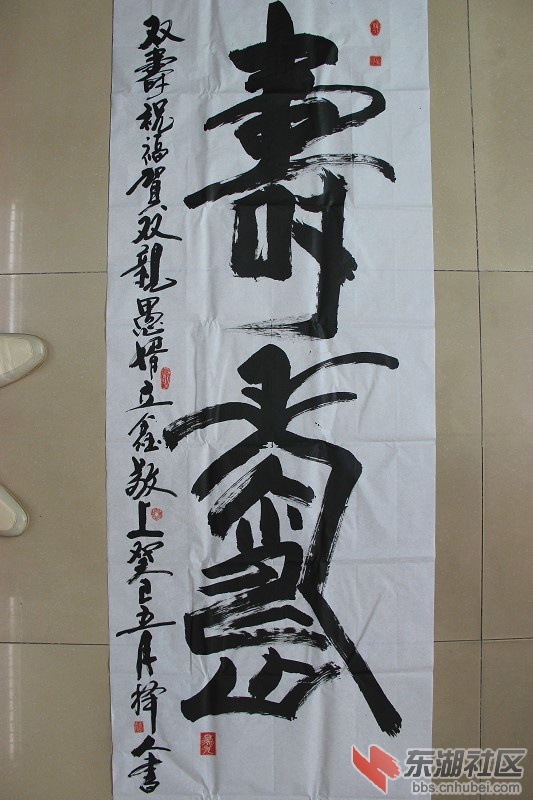 壽壽
双壽祝福賀双親愚婿立鑫敬上癸巳五月择人書
东湖社区
bbs.cnhubei.com